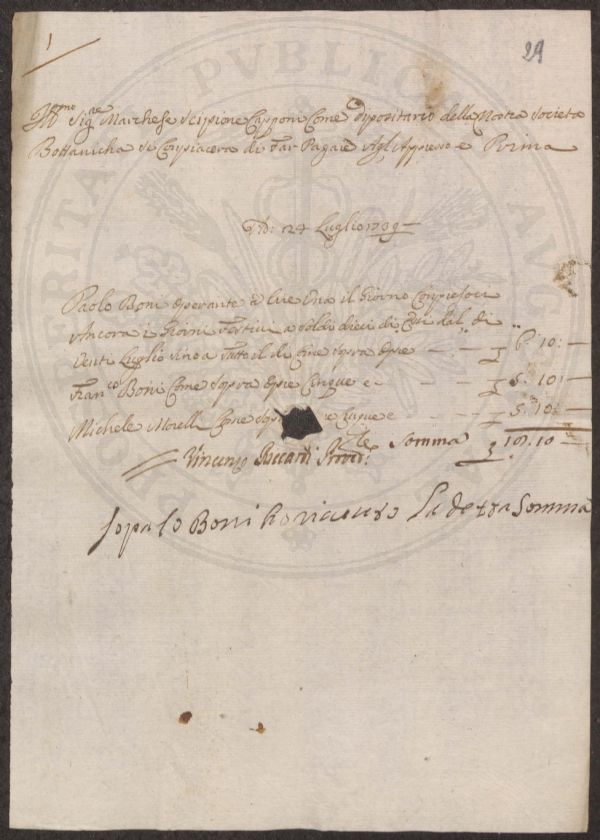 1
29
Sig.re Marchese Scipione Capponi Come dipositario della Nostra Società
Bottanicha Si Conpiacera di Far Pagare Agl Appresso e Prima
24 Luglio 1739
Paolo Boni Operante Lire Una il Giorno
Ancora i Giorni Festivi a Soldi dieci di
Venti Luglio Sino a Tutto il di Come Sopra Opre 6: 10: —
Fran.co Boni Come Sopra Opre Cinque e — 5: 10: —
Michele Morelli Come Sopra e — 5: 10: —
Somma
Vincenzo Riccardi
Io Boni ho riceuto La detta Somma